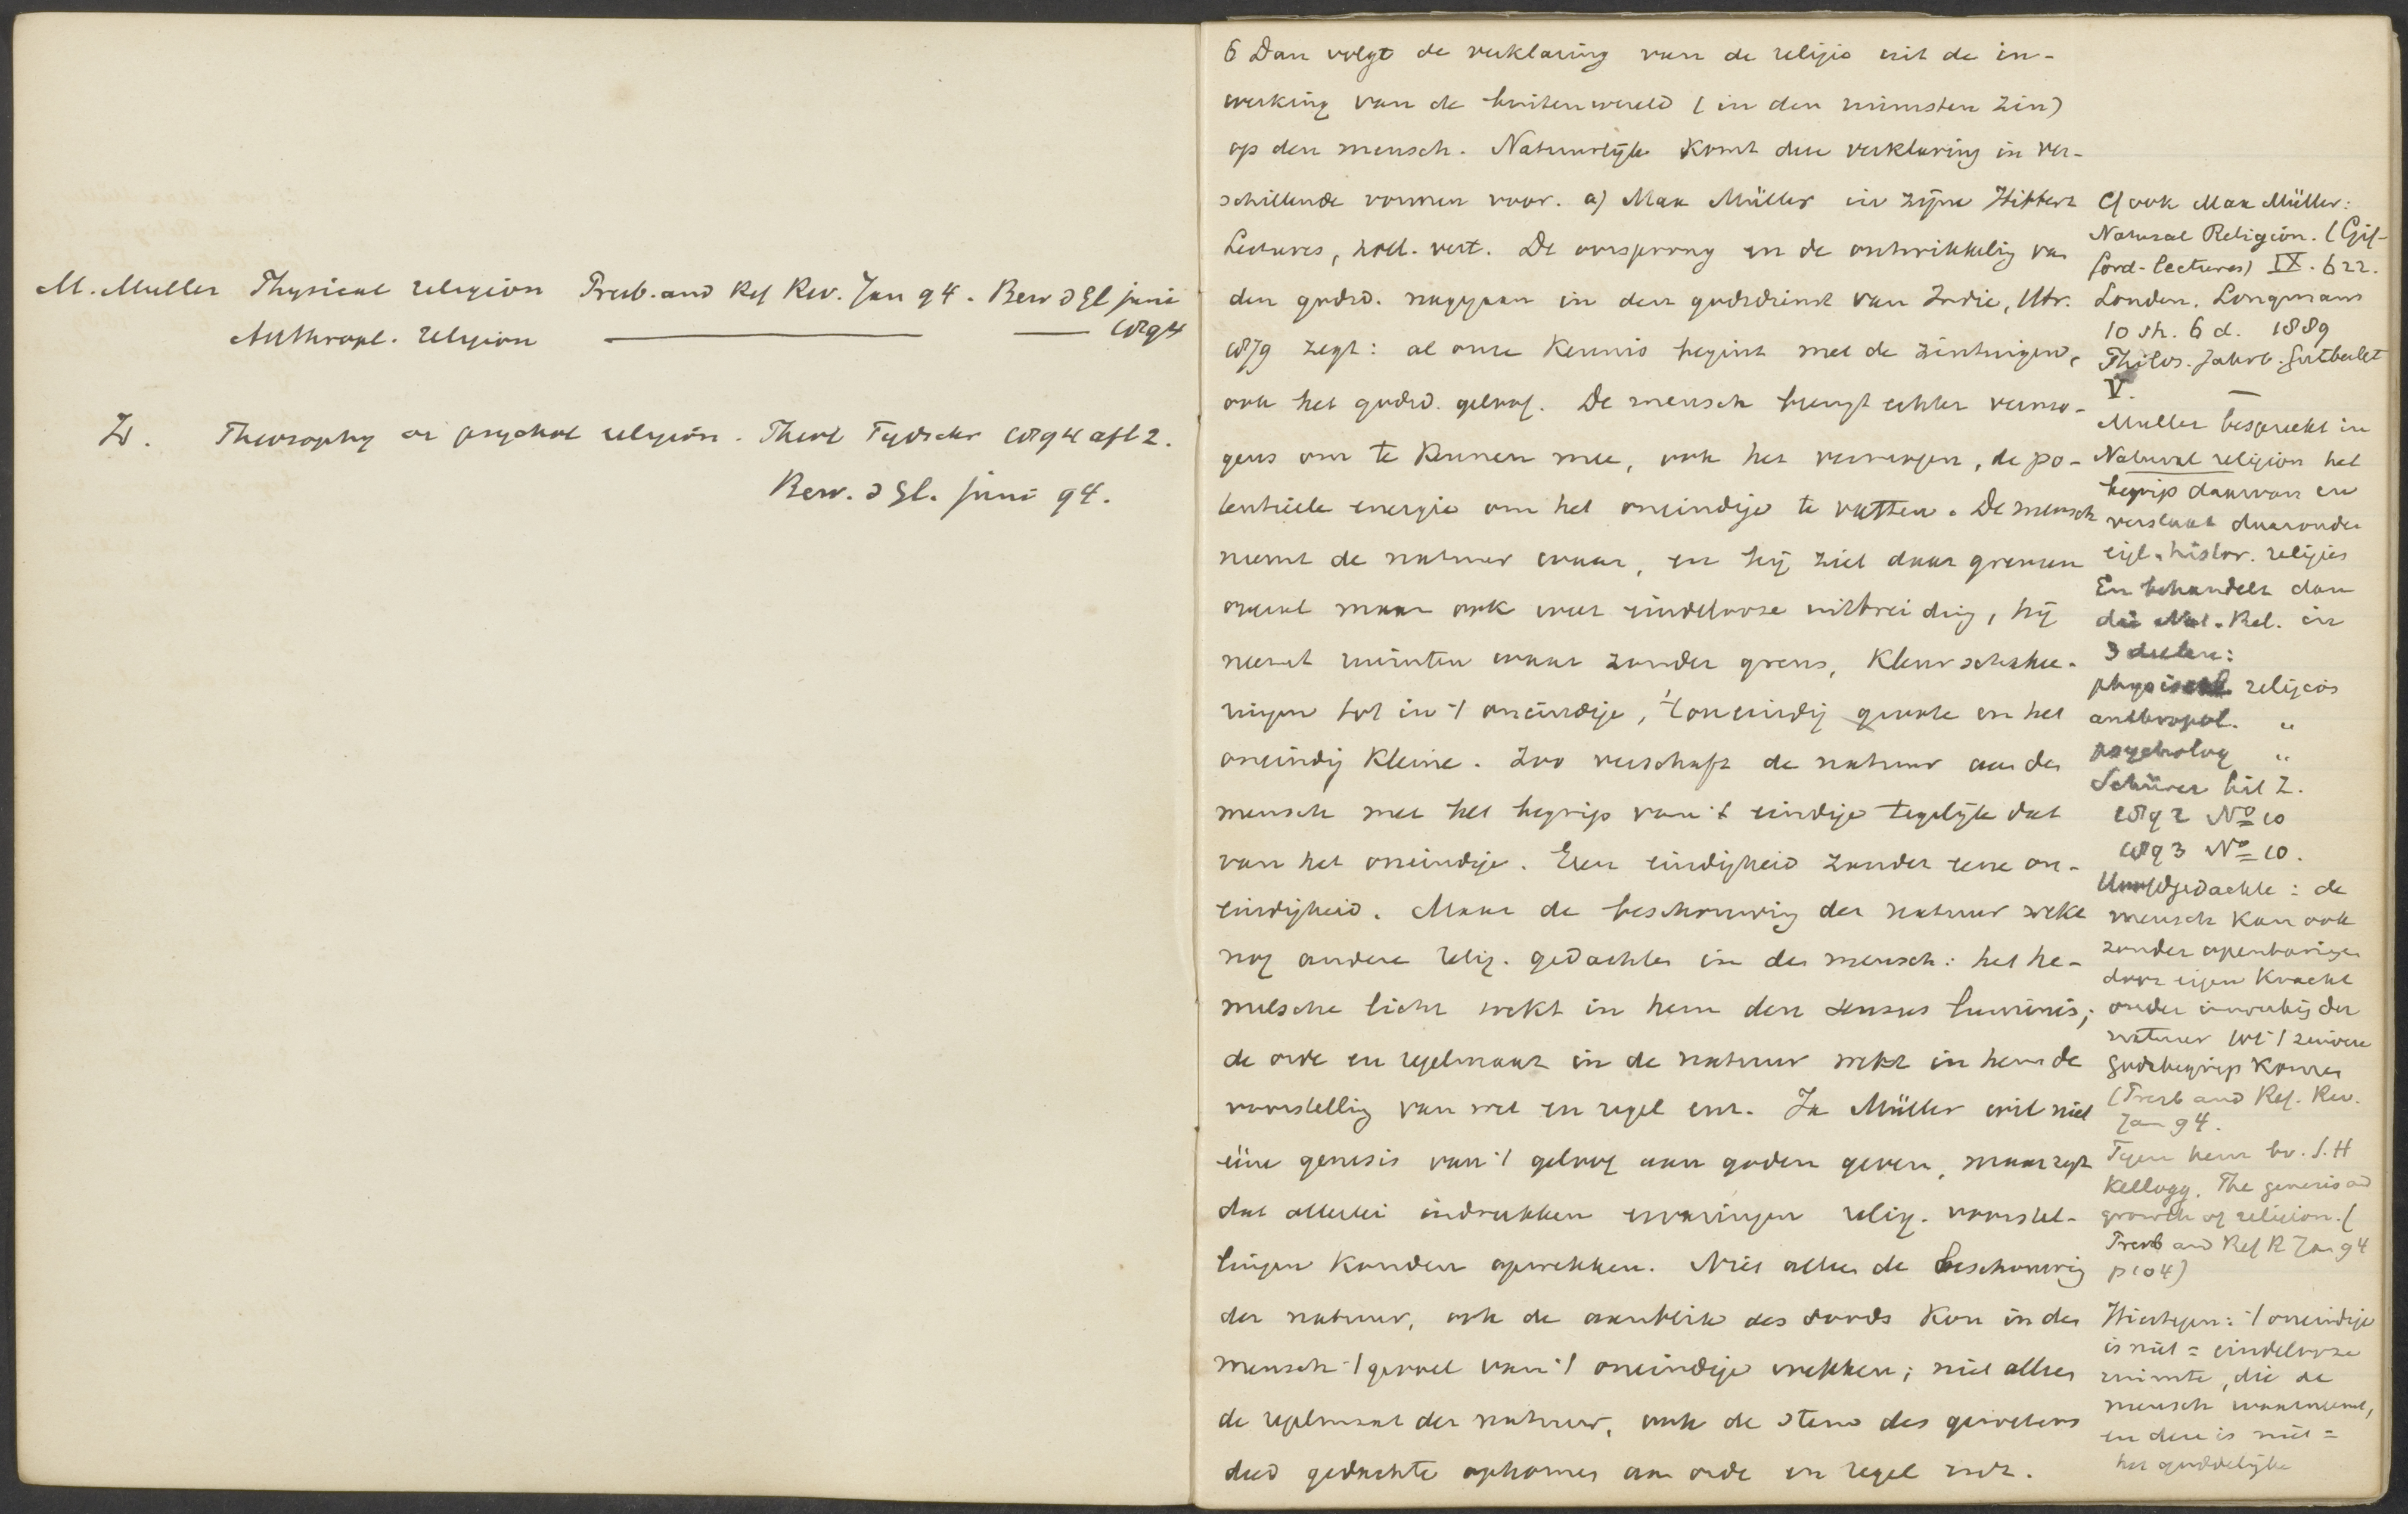 M. Muller Physical religion Presb. and Ref Rev. Jan 94. Bew d Gl juni
Anthropl. religion ——— — 1894
Id. Theosophy or psychol religion. Theol Tydschr 1894 afl 2.
Bew. d Gl. juni 94.
6 Dan volgt de verklaring van de religie uit de in-
werking van de buitenwereld (in den ruimsten zin)
op den mensch. Natuurlijk komt deze verklaring in ver-
schillende vormen voor. a) Max Müller in zijne Hibbert
Lectures, holl. vert. De oorsprong en de ontwikkelig van
den godsd. nagegaan in den godsdienst van Indie, Utr.
1879 zegt: al onze kennis begint met de zintuigen,
ook het godsd. geloof. De mensch brengt echter vermo-
gens om te kennen mee, ook het vermogen, de po-
tentieele energie om het oneindige te vatten. De mensch
neemt de natuur waar, en hij ziet daar grenzen
overal maar ook weer eindelooze uitbreiding, hij
neemt ruimten waar zonder grens, kleurschakee-
ringen tot in 't oneindige, 't oneindig groote en het
oneindig kleine. Zoo verschaft de natuur aan den
mensch met het begrip van 't eindige tegelijk dat
van het oneindige. Geen eindigheid zonder eene on-
eindigheid. Maar de beschouwing der natuur wekt
nog andere relig. gedachten in den mensch: het he-
melsche licht wekt in hem den sensus luminis;
de orde en regelmaat in de natuur wekt in hem de
voorstellig van wet en regel enz. Ja Müller wil niet
ééne genesis van 't geloof aan goden geven, maar zegt
dat allerlei indrukken ervaringen relig. voorstel-
lingen konden opwekken. Niet alleen de beschouwing
der natuur, ook de aanblik des doods kon in den
mensch 't gevoel van 't oneindige wekken; niet alleen
de regelmaat der natuur, ook de stem des gewetens
deed gedachte opkomen aan orde en regel enz.
Cf ook Max Müller:
Natural Religion. (Gif-
ford-lectures) IX. 622.
London. Longmans
10 sh. 6 d. 1889
Philos. Jahrb. Gutberlet
V.
Müller bespreekt in
Natural religion het
begrip daarvan en
verstaat daaronder
eigl. histor. religies
En behandelt dan
die Nat. Rel. in
3 deelen:
physical religion
anthropol. "
psycholog "
Schürer Lit Z.
1892 No 10
1893 No 10.
Hoofdgedachte: de
mensch kan ook
zonder openbaring
door eigen kracht
onder inwerkig der
natuur tot 't zuivere
godsbegrip komen
(Presb and Ref. Rev.
Jan 94.
Tegen hem bv. S.H
Kellogg. The genesis and
growth of religion. (
Presb and Ref R Jan 94
p 104)
Hiertegen: 't oneindige
is niet = eindelooze
ruimte, die de
mensch waarneemt,
en deze is niet =
het goddelijke